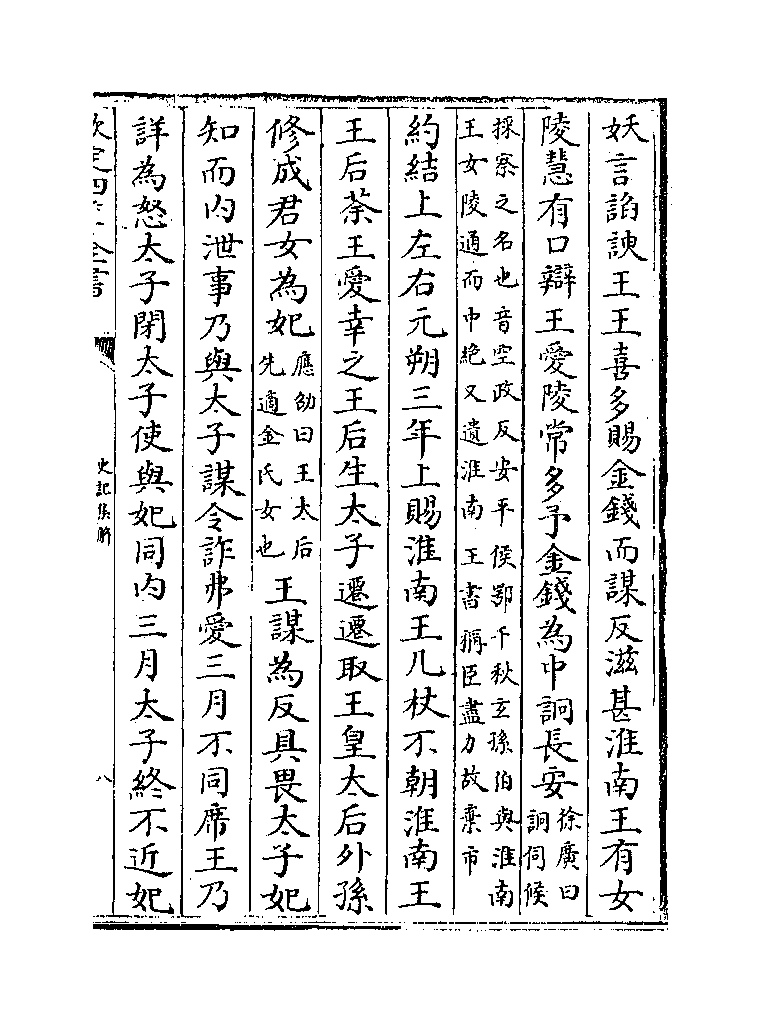 妖言諂諛王王喜多賜金錢而謀反滋甚淮南王有女
陵慧有口辯王愛陵常多予金錢為中詗長安徐廣曰詗伺候
採察之名也音空政反安平侯鄂千秋玄孫伯與淮南
王女陵通而中絶又遺淮南王書稱臣盡力故棄市
約結上左右元朔三年上賜淮南王几杖不朝淮南王
王后荼王愛幸之王后生太子遷遷取王皇太后外孫
修成君女為妃應劭曰王太后先適金氏女也王謀為反具畏太子妃
知而内泄事乃與太子謀令詐弗愛三月不同席王乃
詳為怒太子閉太子使與妃同内三月太子終不近妃
欽定四庫全書
史記集解
八